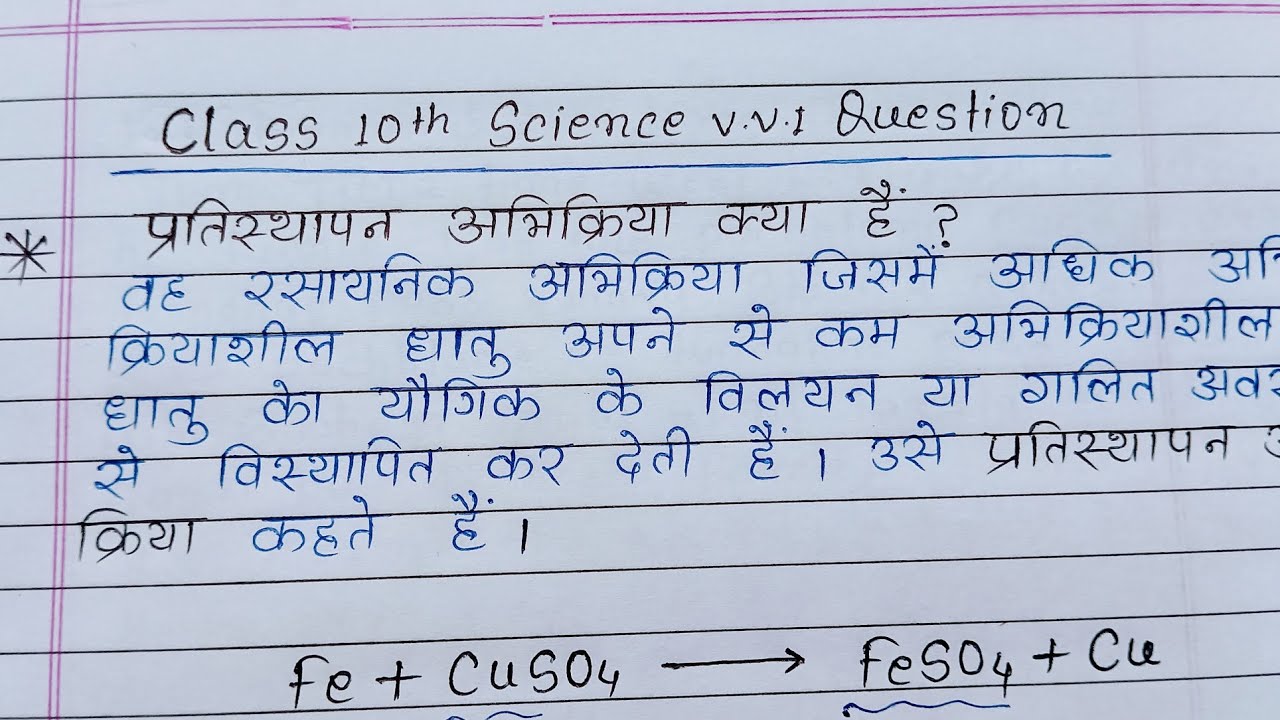 Class 10th Science v.v.I Question
* प्रतिस्थापन अभिक्रिया क्या हैं ?
वह रसायनिक अभिक्रिया जिसमें अधिक
क्रियाशील धातु अपने से कम अभिक्रियाशील
धातु को यौगिक के विलयन या गलित
से विस्थापित कर देती हैं । उसे प्रतिस्थापन
क्रिया कहते हैं ।
Fe + CuSO4 ⟶ FeSO4 + Cu